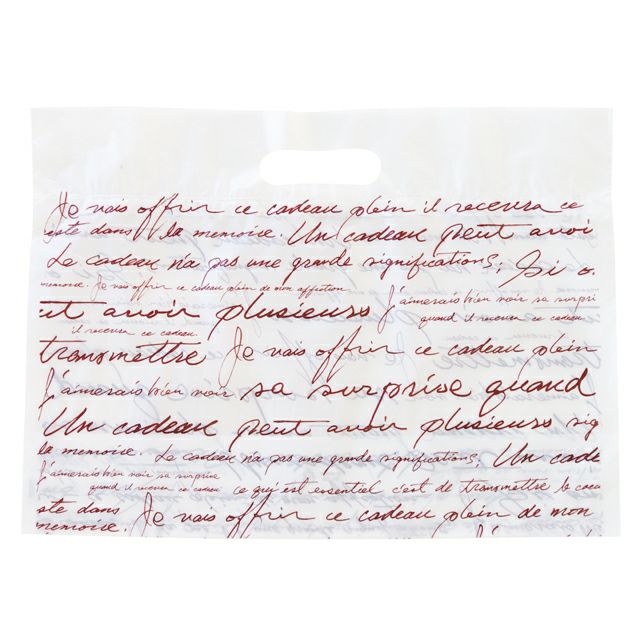 Je vais offrir ce cadeau plein il recevra ce
este dans la memoire. Un cadeau peut avoi
Le cadeau n'a pas une grande significations; Si o
memoire. Je vais offrir ce cadeau plein de mon affection
ut avoir plusieurs j'aimerais bien voir sa surpri
il recevra ce cadeau. quand il recevra ce cadeau
transmettre Je vais offrir ce cadeau plein
j'aimerais bien voir sa surprise quand
Un cadeau peut avoir plusieurs sig
la memoire. Le cadeau n'a pas une grande significations; Un cade
j'aimerais bien voir sa surprise
quand il recevra ce cadeau ce qui est essentiel c'est de transmettre le coeu
ste dans Je vais offrir ce cadeau plein de mon
memoire.